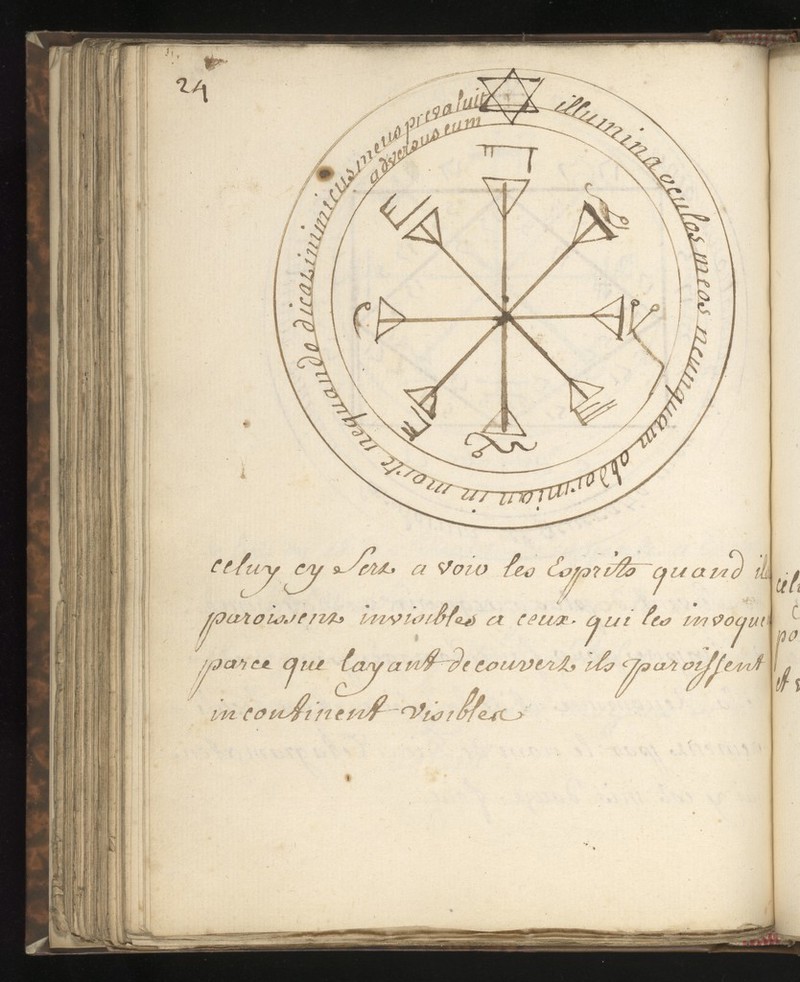 24
illumina oculos meos neunquam obdormian in morte nequando dicat inimicus meus prevaluit
adversus eum
celuy cy sert a voir les Esprits quand il
paroissent invisibles a ceux. qui les invoque
parce que layant decouvert ils paroissent
incontinent visibles